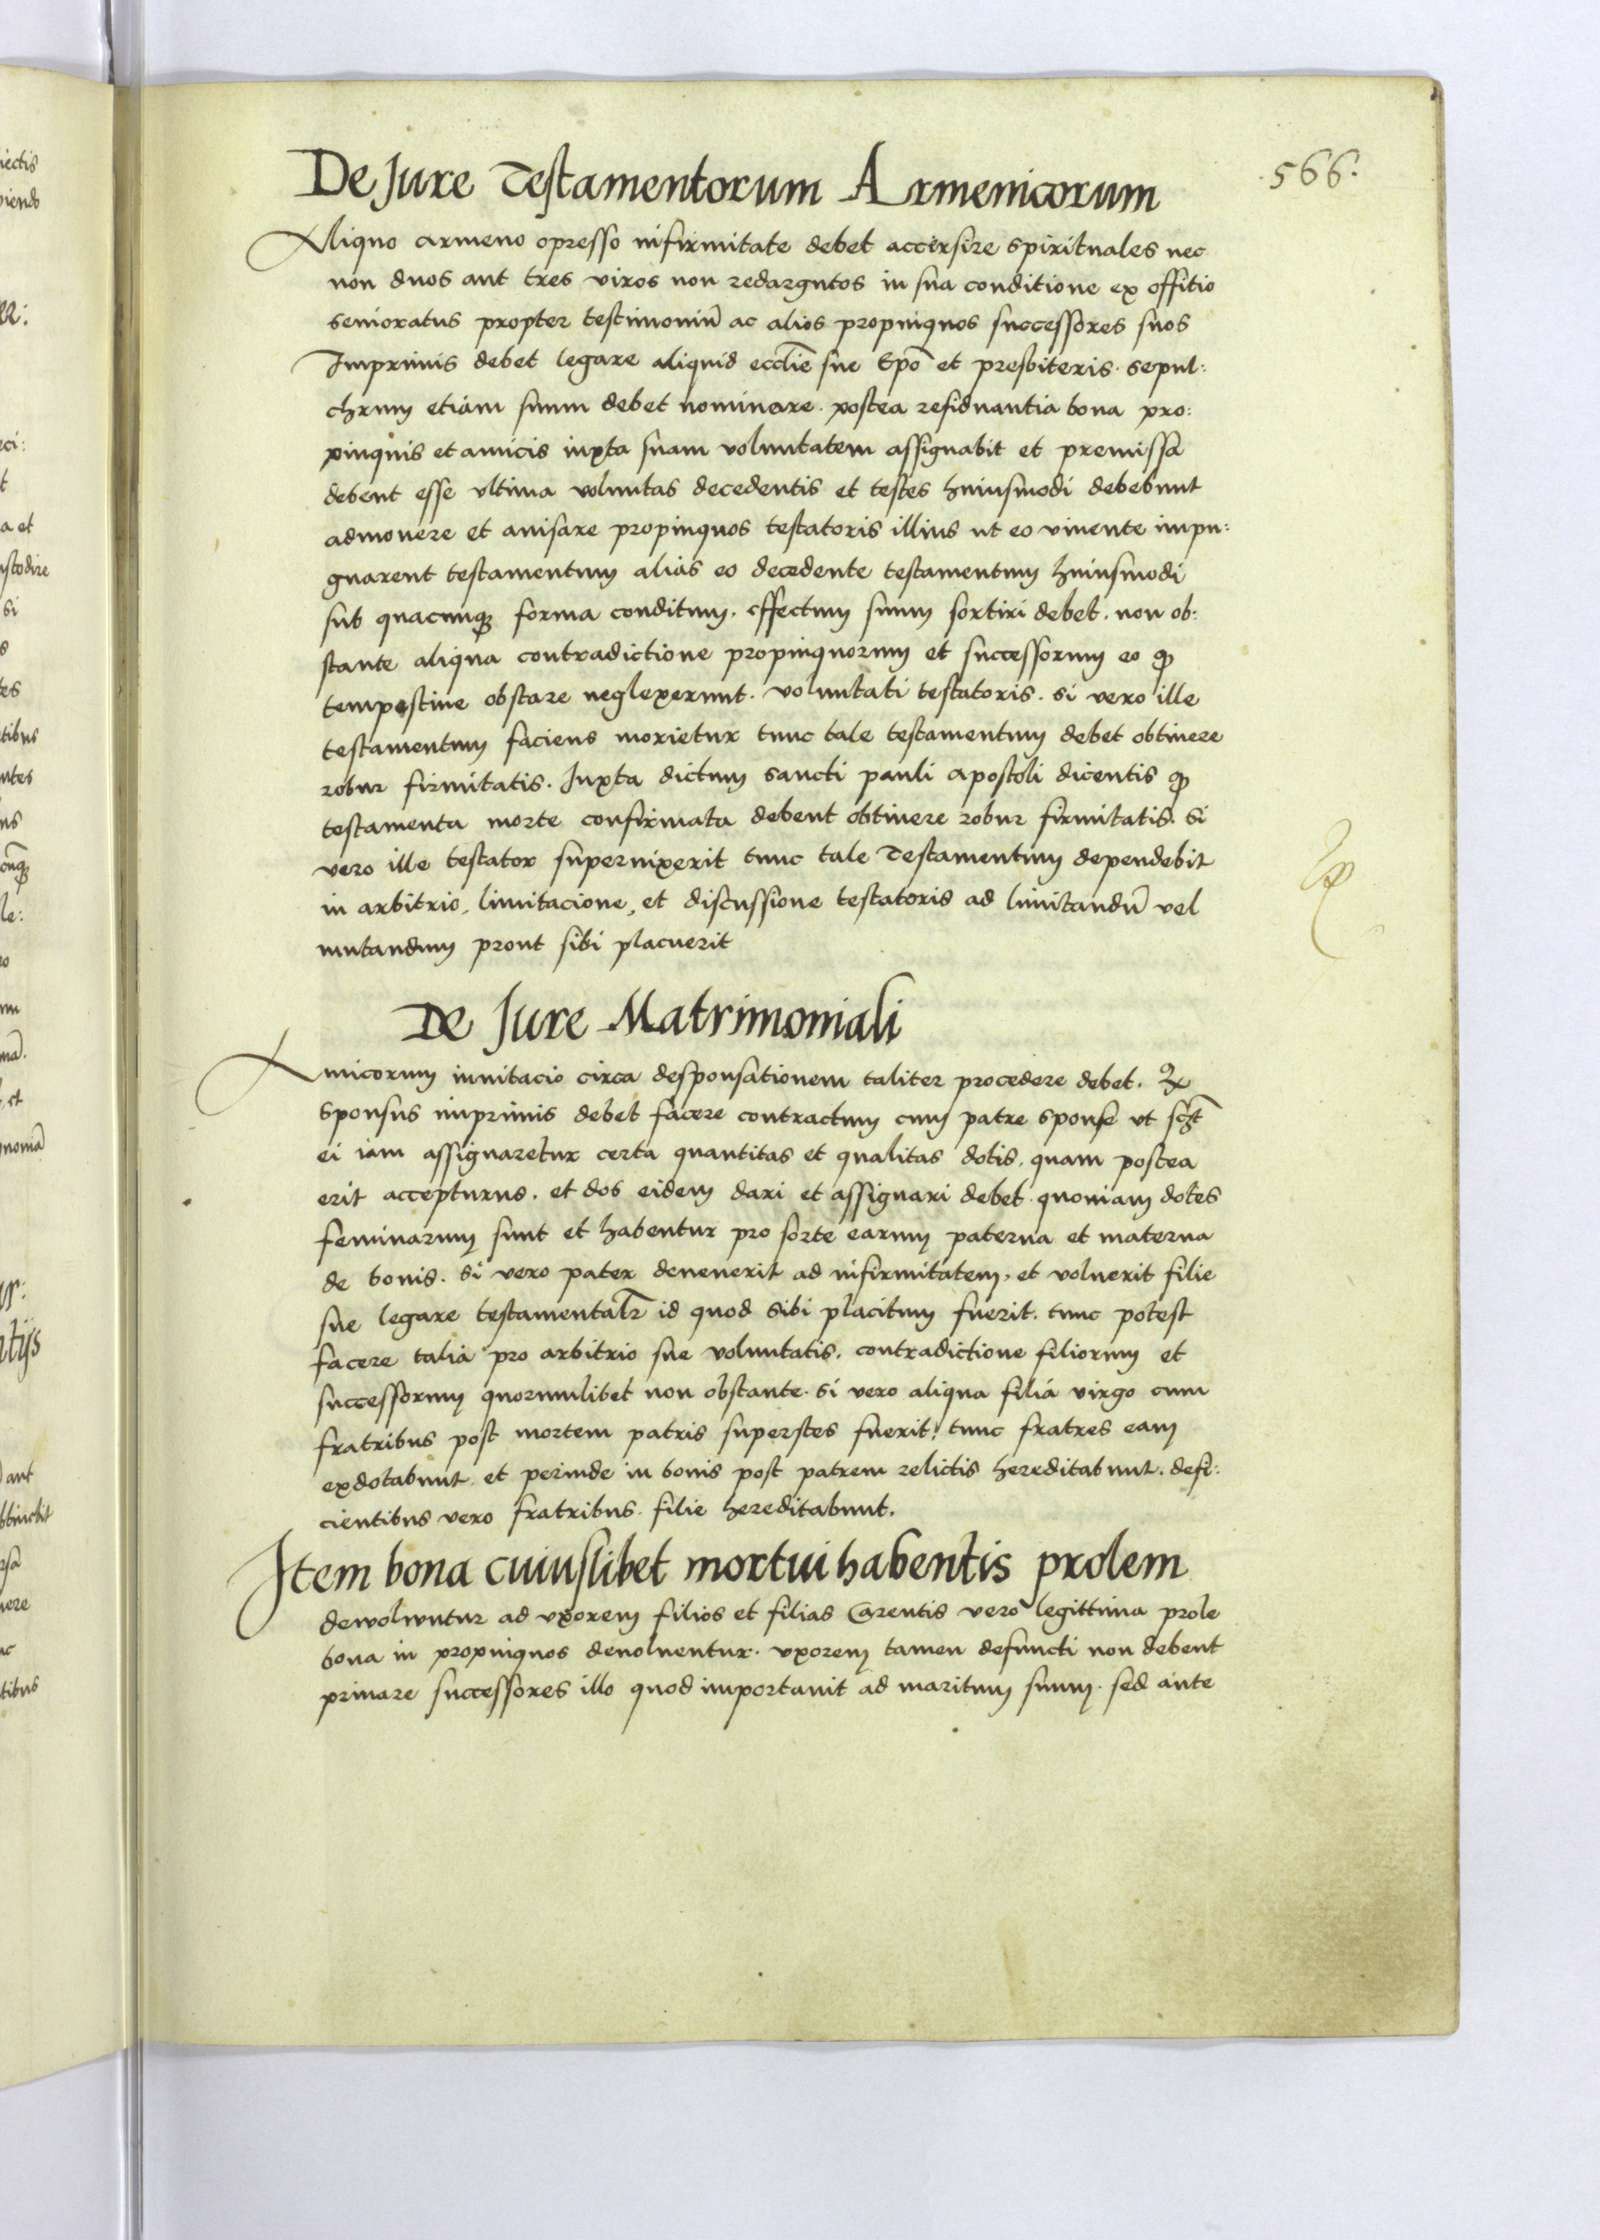 566.
De Jure Testamentorum Armenicorum
Aliquo armeno opresso infirmitate debet accersire spirituales nec
non duos aut tres viros non redargutos in sua conditione ex offitio
senioratus propter testimoniū ac alios propinquos successores suos
Imprimis debet legare aliquid eccl̄ie sue Ep̄o et presbiteris. sepul:
chrum etiam suum debet nominare. postea residuantia bona pro:
pinquis et amicis iuxta suam voluntatem assignabit et premissa
debent esse ultima voluntas decedentis et testes huiusmodi debebunt
admonere et avisare propinquos testatoris illius ut eo vivente impu:
gnarent testamentum alias eo decedente testamentum huiusmodi
sub quacunqꝫ forma conditum. effectum suum sortiri debet. non ob:
stante aliqua contradictione propinquorum et successorum eo ꝙ
tempestiue obstare neglexerunt. voluntati testatoris. si vero ille
testamentum faciens morietur tunc tale testamentum debet obtinere
robur firmitatis. Juxta dictum sancti pauli apostoli dicentis ꝙ
testamenta morte confirmata debent obtinere robur firmitatis. si
vero ille testator supervixerit tunc tale Testamentum dependebit
in arbitrio, limitacione, et discussione testatoris ad limitandū vel
mutandum prout sibi placuerit
De Jure Matrimoniali
Amicorum inuitacio circa desponsationem taliter procedere debet.
sponsus imprimis debet facere contractum cum patre sponse ut
ei iam assignaretur certa quantitas et qualitas dotis. quam postea
erit accepturus. et dos eidem dari et assignari debet. quoniam dotes
feminarum sunt et habentur pro sorte earum paterna et materna
de bonis. si vero pater deuenerit ad infirmitatem, et voluerit filie
sue legare testamentalr̄ id quod sibi placitum fuerit. tunc potest
facere talia pro arbitrio sue voluntatis. contradictione filiorum et
successorum quorumlibet non obstante. si vero aliqua filia virgo cum
fratribus post mortem patris superstes fuerit, tunc fratres eam
exdotabunt. et perinde in bonis post patrem relictis hereditabunt. defi:
cientibus vero fratribus. filie hereditabunt.
Item bona cuiuslibet mortui habentis prolem
dewolwntur ad uxorem filios et filias Carentis vero legittima prole
bona in propinquos deuoluentur. uxorem tamen defuncti non debent
priuare successores illo quod importauit ad maritum suum. sed ante